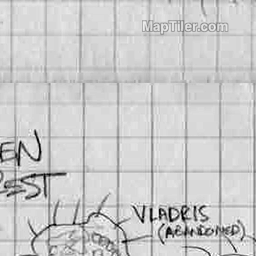 MapTiler.com
EN
EST
VLADRIS
(ABANDONED)